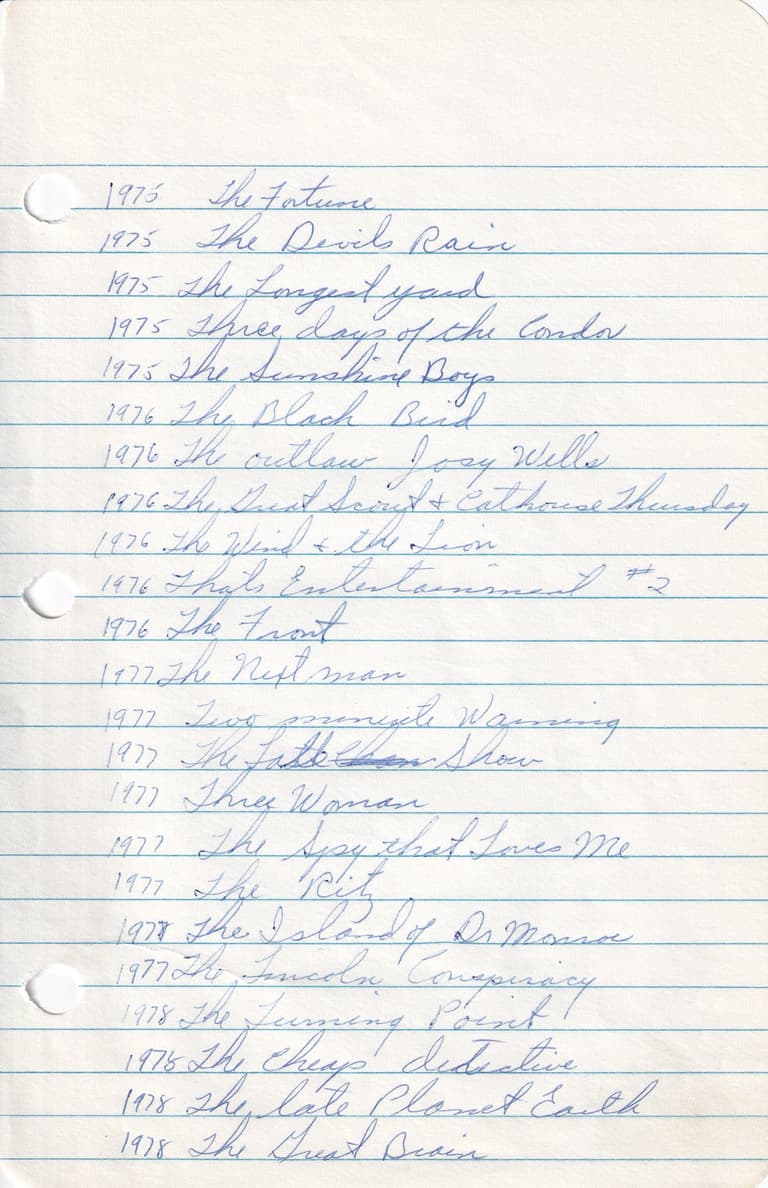 1975 The Fortune
1975 The Devils Rain
1975 The Longest yard
1975 Three days of the Condor
1975 The Sunshine Boys
1976 The Black Bird
1976 The outlaw Josy Wells
1976 The Great Scout & Cathouse Thursday
1976 The Wind & the Lion
1976 Thats Entertainment #2
1976 The Front
1977 The Next man
1977 Two minute Warning
1977 The Late Show
1977 Three Woman
1977 The Spy that Loves Me
1977 The Ritz
1977 The Island of Dr Monroe
1977 The Lincoln Conspiracy
1978 The Turning Point
1978 The Cheap detective
1978 The late Planet Earth
1978 The Great Brain